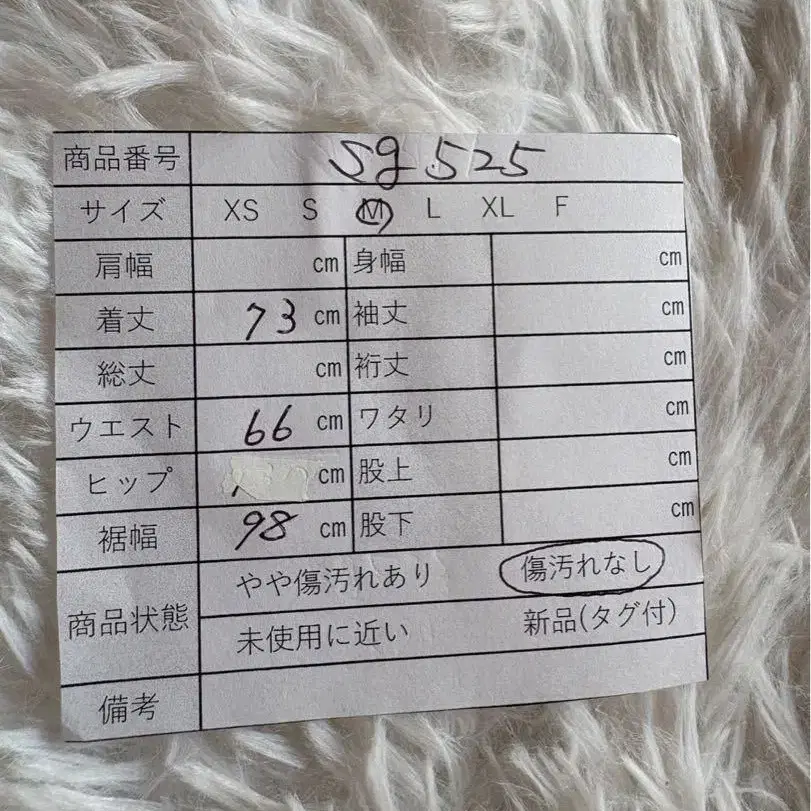 商品番号 sg 525
サイズ XS S M L XL F
肩幅 cm 身幅 cm
着丈 73 cm 袖丈 cm
総丈 cm 裄丈 cm
ウエスト 66 cm ワタリ cm
ヒップ cm 股上 cm
裾幅 98 cm 股下 cm
商品状態 やや傷汚れあり 傷汚れなし
未使用に近い 新品(タグ付)
備考